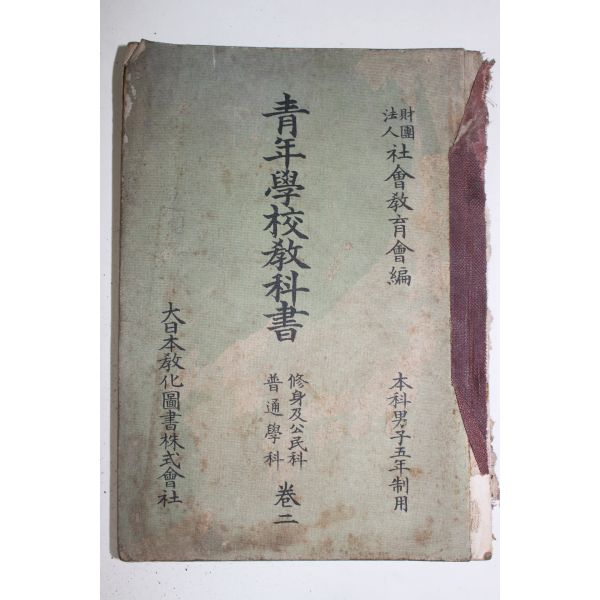 財團
法人
社會敎育會編
本科男子五年制用
青年學校敎科書
修身及公民科
普通學科
卷二
大日本敎化圖書株式會社